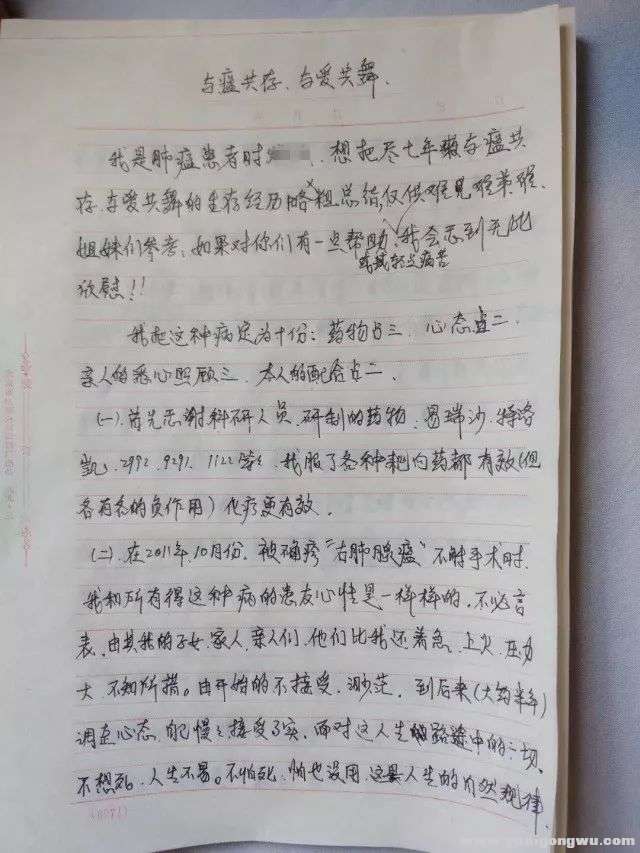 与癌共存、与爱共舞.
我是肺癌患者时 想把尽七年与癌共
存、与爱共舞的生存经历略粗总结仅供难兄难弟难
姐妹们参考;如果对你们有一点帮助、我会感到无比
或减轻点病苦
欣慰!!
我把这种病定为十份:药物占三 心态占二
亲人的悉心照顾三 本人的配合占二.
(一).首先感谢科研人员 研制的药物 易瑞沙.特洛
凯、2992.9291.1122等等 我服了各种靶向药都有效(但
各有各的负作用)化疗更有效.
(二).在2011年10月份.被确疹“右肺腺癌”不时手术时.
我和所有得这种病的患友心情是一样样的.不必言
表.由其我的子女.家人.亲人们.他们比我还着急.上火.压力
大 不知所措。由开始的不接受.渺茫.到后来(大约半年)
调正心态.自己慢慢接受了实.面对这人生路途中的一切、
不想死.人生不易。不怕死.怕也没用.这是人生的自然规律.